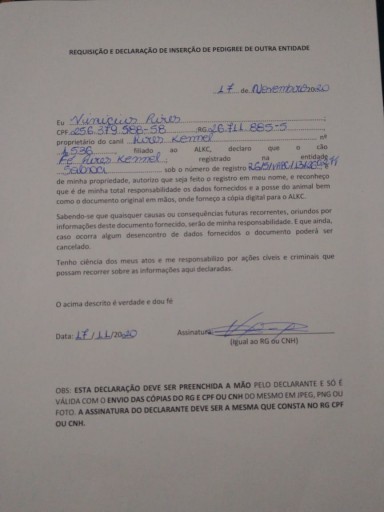 REQUISIÇÃO E DECLARAÇÃO DE INSERÇÃO DE PEDIGREE DE OUTRA ENTIDADE
17 de Novembro 2020
Eu Vinicius Aires
CPF 256.379.588-58 RG 26.711.885-5
proprietário do canil Aires Kennel nº
1536 filiado ao ALKC, declaro que o cão
Aires Kennel registrado na entidade
sob o número de registro
de minha propriedade, autorizo que seja feito o registro em meu nome, e reconheço
que é de minha total responsabilidade os dados fornecidos e a posse do animal bem
como o documento original em mãos, onde forneço a cópia digital para o ALKC.
Sabendo-se que quaisquer causas ou consequências futuras recorrentes, oriundos por
informações deste documento fornecido, serão de minha responsabilidade. E que ainda,
caso ocorra algum desencontro de dados fornecidos o documento poderá ser
cancelado.
Tenho ciência dos meus atos e me responsabilizo por ações cíveis e criminais que
possam recorrer sobre as informações aqui declaradas.
O acima descrito é verdade e dou fé
Data: 17/11/2020 Assinatura
(Igual ao RG ou CNH)
OBS: ESTA DECLARAÇÃO DEVE SER PREENCHIDA A MÃO PELO DECLARANTE E SÓ É
VÁLIDA COM O ENVIO DAS CÓPIAS DO RG E CPF OU CNH DO MESMO EM JPEG, PNG OU
FOTO. A ASSINATURA DO DECLARANTE DEVE SER A MESMA QUE CONSTA NO RG CPF
OU CNH.